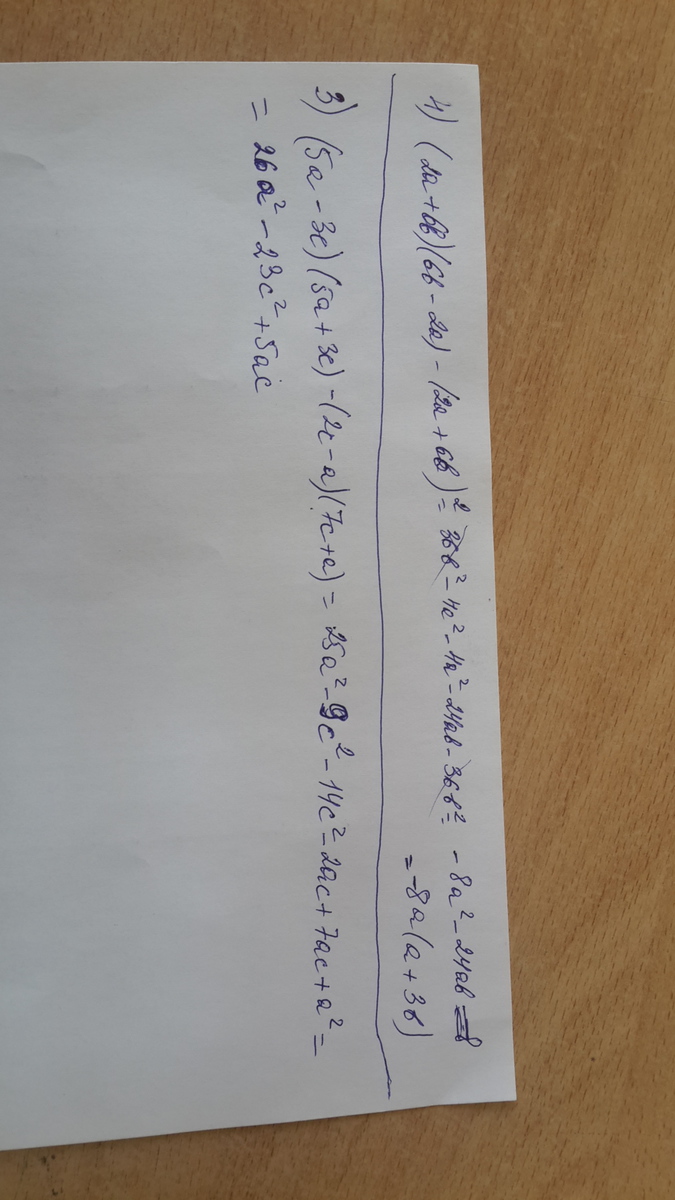 4) (2a+6b)(6b-2a)-(2a+6b)²= 36b²-4a²-4a²-24ab-36b²= -8a²-24ab =
=-8a(a+3b)
3) (5a-3c)(5a+3c)-(2c-a)(7c+a)=25a²-9c²-14c²-2ac+7ac+a²=
= 26a²-23c²+5ac